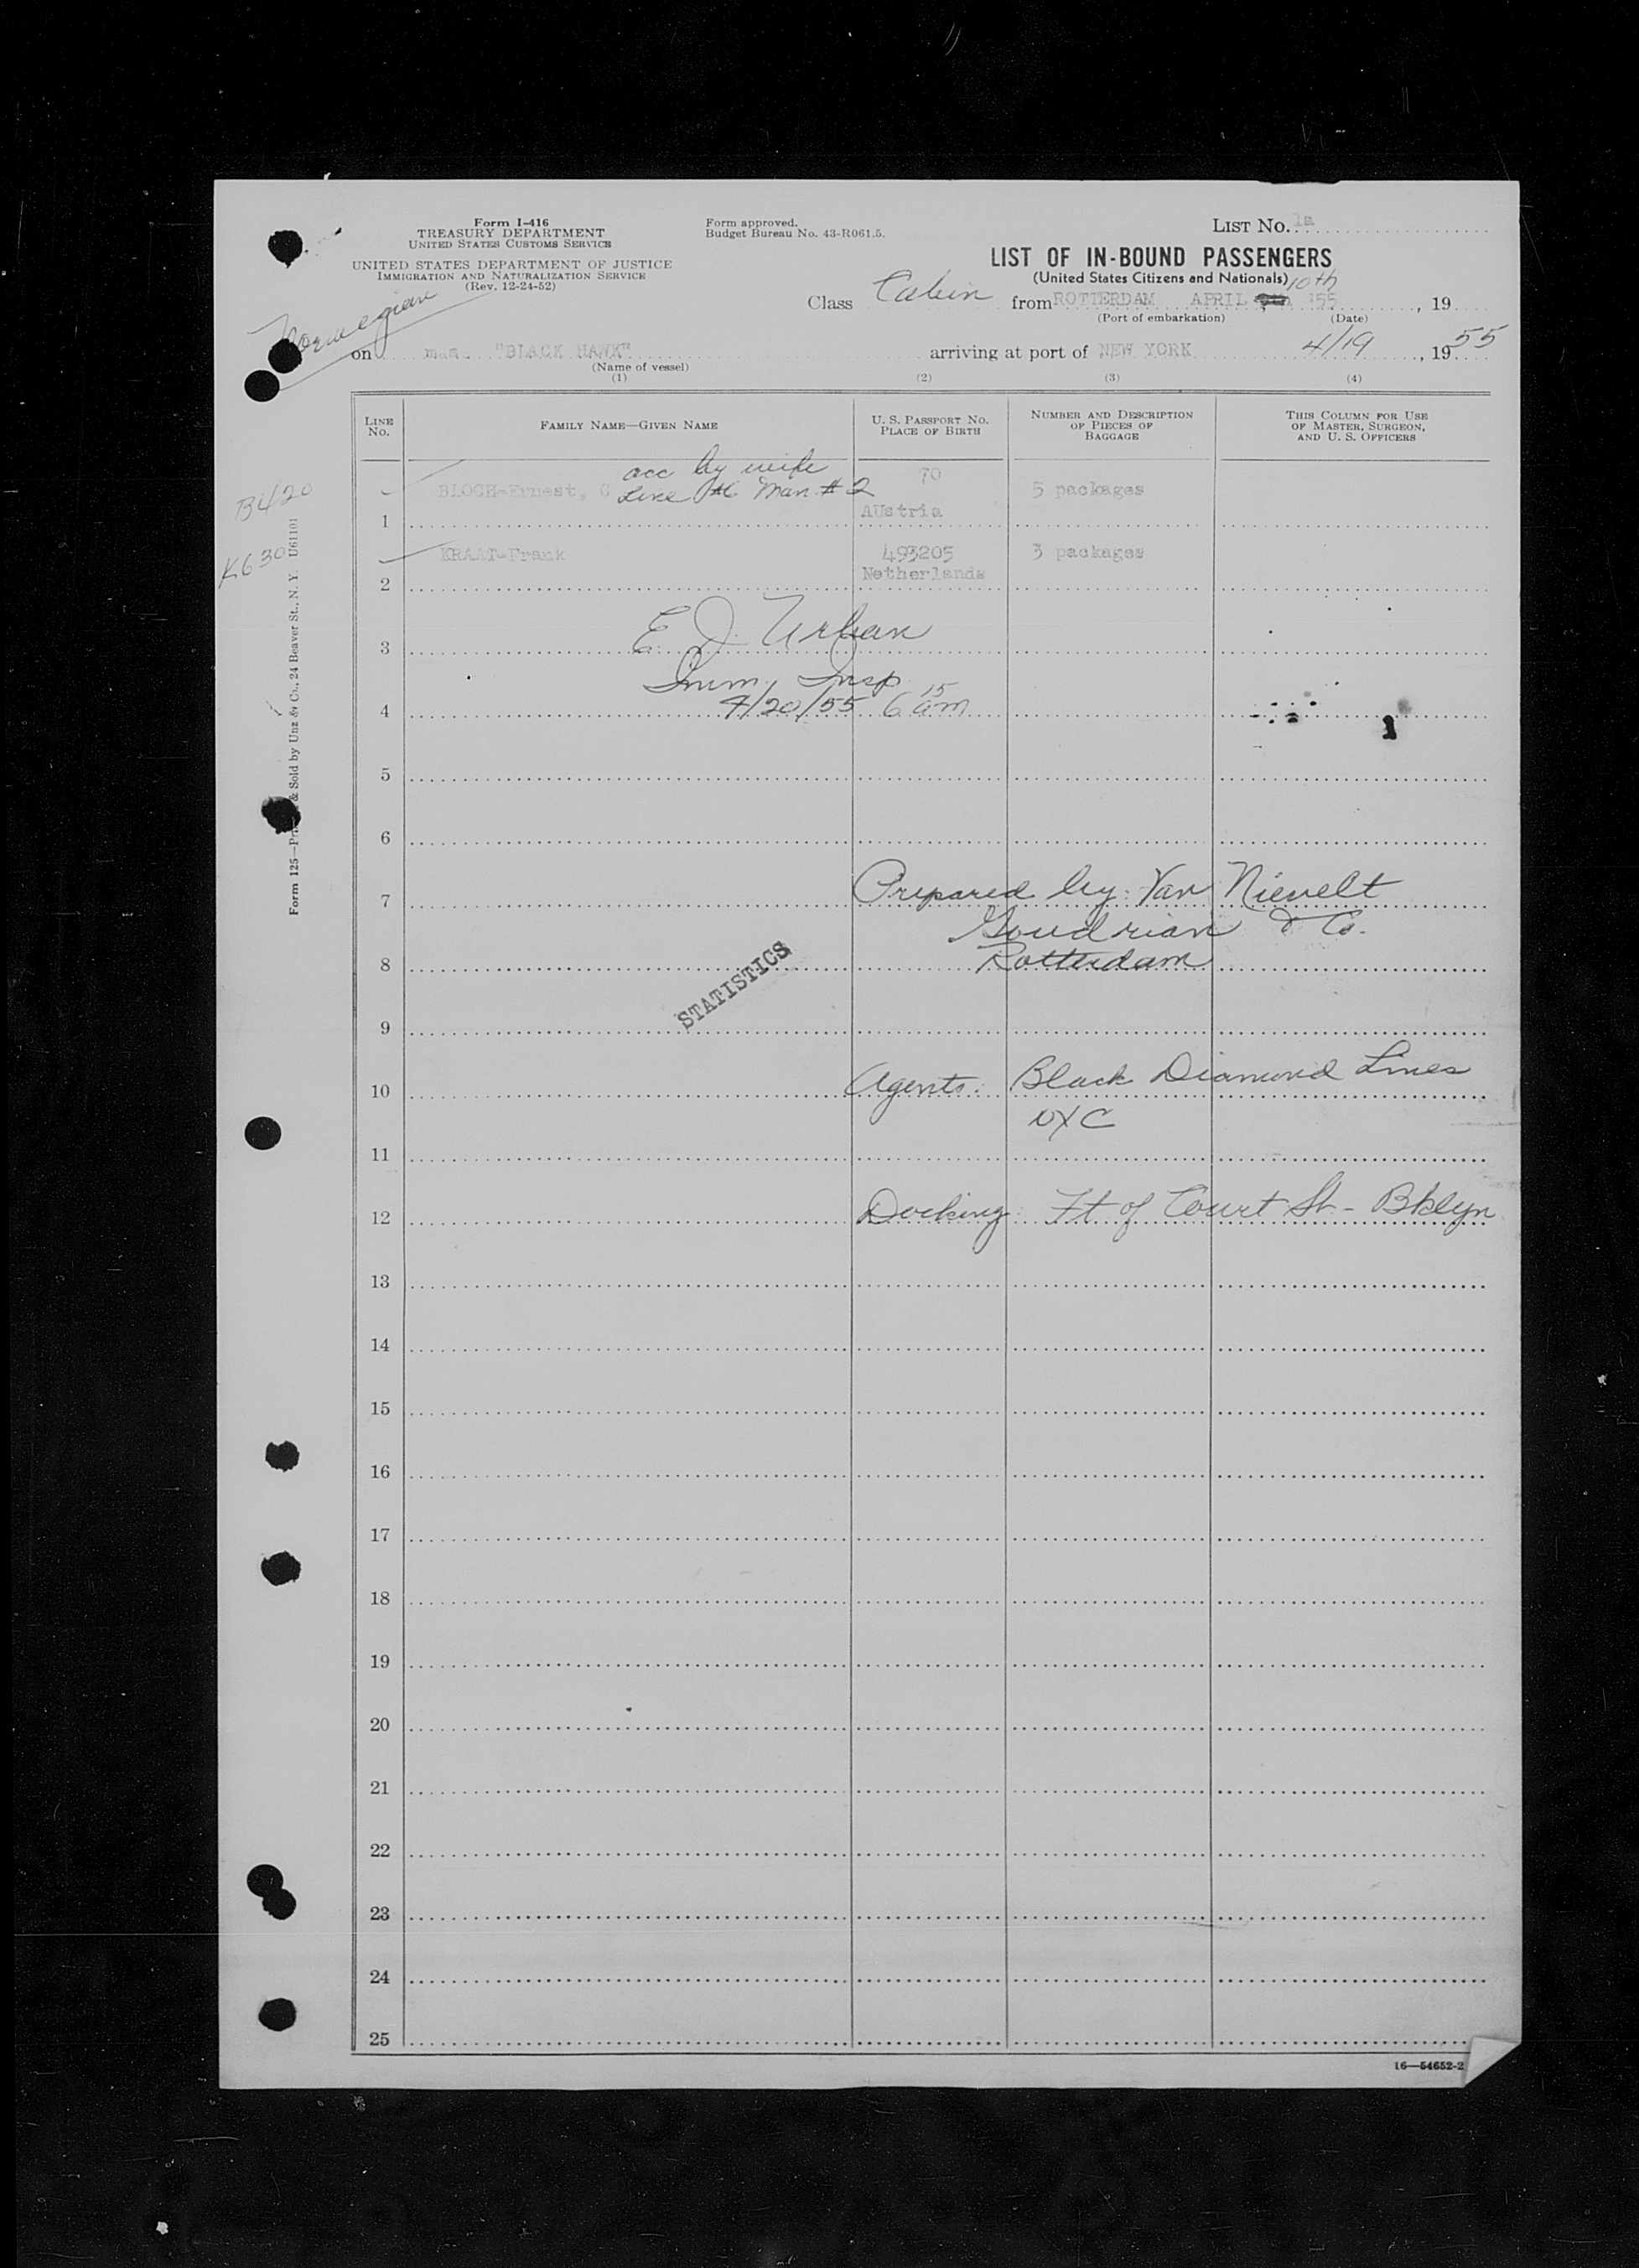 Form I-416
TREASURY DEPARTMENT
UNITED STATES CUSTOMS SERVICE
UNITED STATES DEPARTMENT OF JUSTICE
IMMIGRATION AND NATURALIZATION SERVICE
(Rev. 12-24-52)
Form approved.
Budget Bureau No. 43-R061.5.
LIST No. 1a
LIST OF IN-BOUND PASSENGERS
(United States Citizens and Nationals)
10th
Class Cabin from ROTTERDAM APRIL '55, 19
(Port of embarkation) (Date)
Norwegian
on m.s. "BLACK HAWK" arriving at port of NEW YORK 4/19, 1955
(Name of vessel)
(1) (2) (3) (4)
LINE No.
FAMILY NAME—GIVEN NAME
U. S. PASSPORT No.
PLACE OF BIRTH
NUMBER AND DESCRIPTION
OF PIECES OF
BAGGAGE
THIS COLUMN FOR USE
OF MASTER, SURGEON,
AND U. S. OFFICERS
acc by wife
B420 BLOCH-Ernest, C Line #6 Man. #2 70 5 packages
1 AUstria
K630 KRAAT-Frank 493205 3 packages
2 Netherlands
E. J. Urban
3
Imm. Insp
4 4/20/55 6 15 am
5
6
7 Prepared by: Van Nievelt
Goudrian & Co.
8 Rotterdam
STATISTICS
9
10 Agents: Black Diamond Lines
NYC
11
12 Docking: Ft of Court St - Bklyn
13
14
15
16
17
18
19
20
21
22
23
24
25
Form 125— & Sold by Unz & Co., 24 Beaver St., N. Y. U61101
16—54652-2